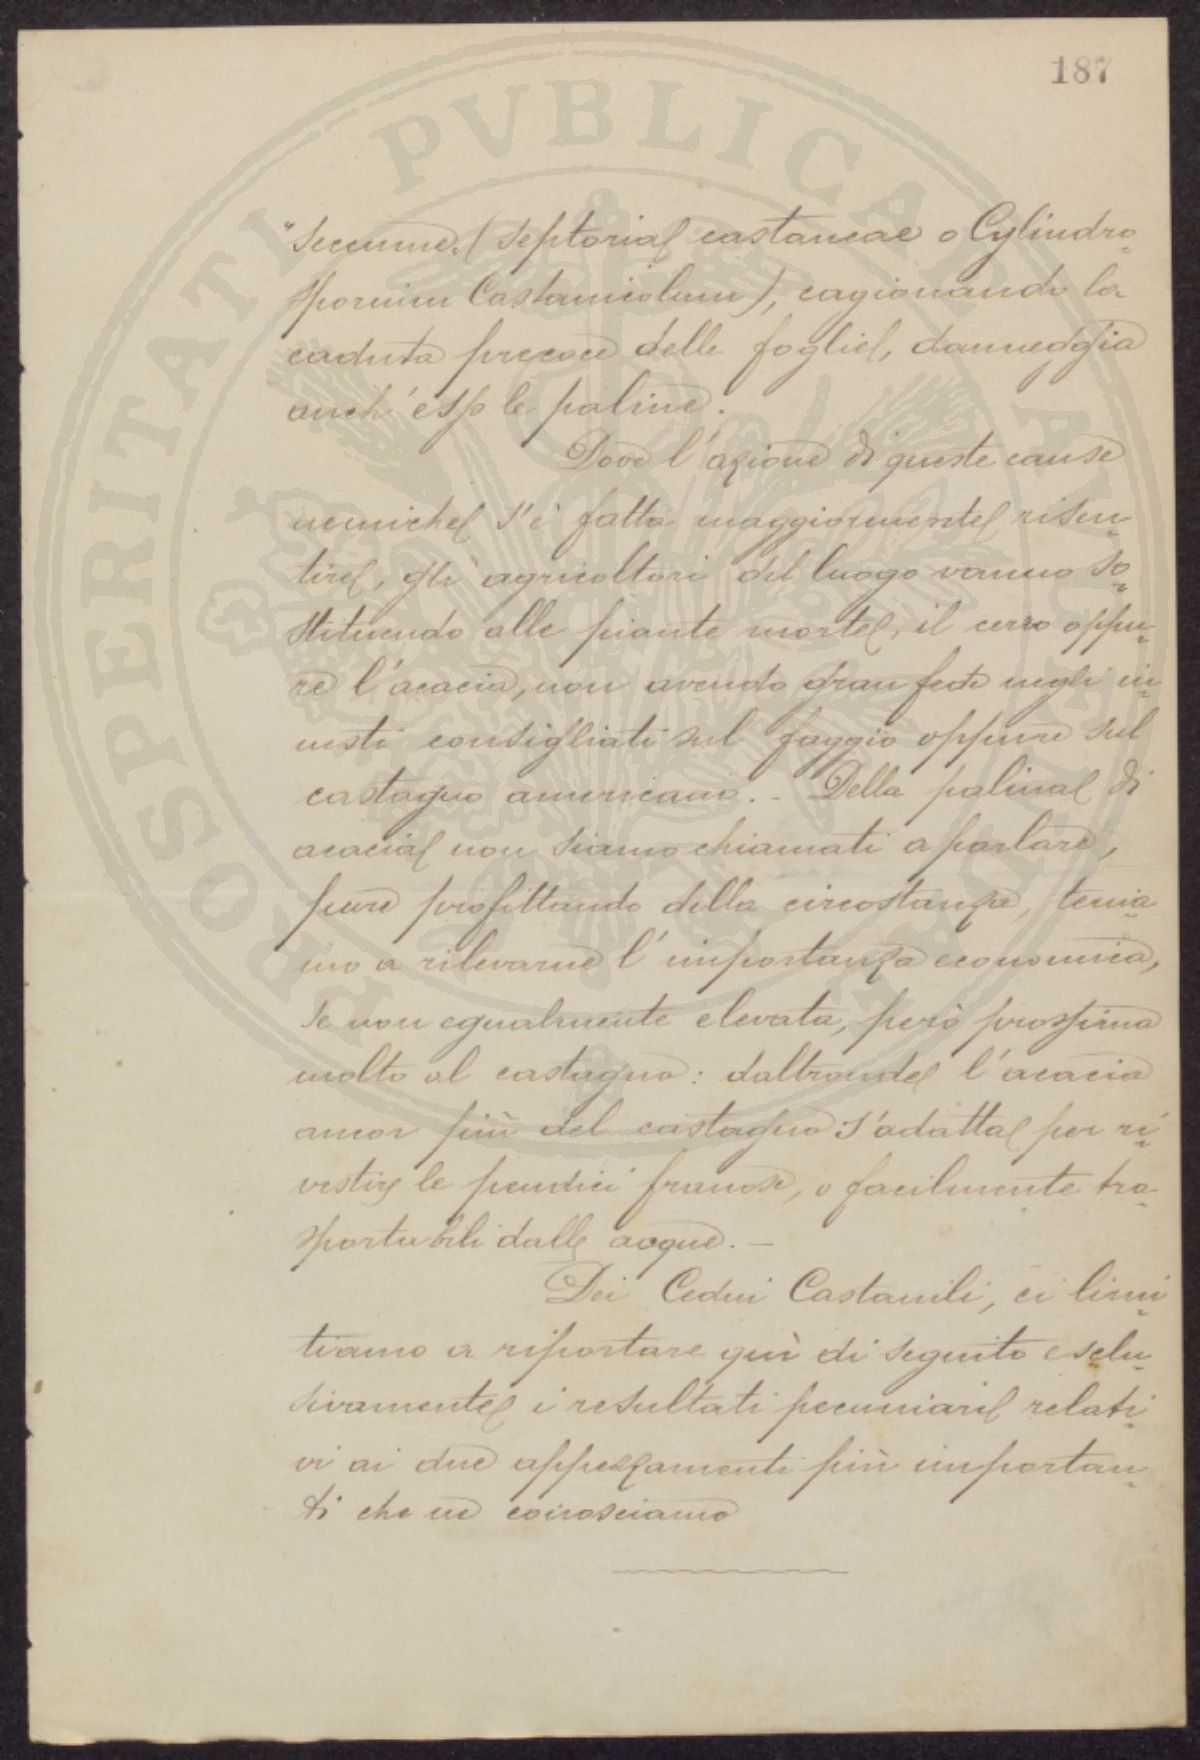 187
PROSPERITATI PVBLICAE AVGENDAE
"Seccume„ (Septoria castaneae o Cylindro-
sporium Castanicolum), cagionando la
caduta precoce delle foglie, danneggia
anch'esso le paline.
Dove l'azione di queste cause
nemiche s'è fatta maggiormente risen-
tire, gli agricoltori del luogo vanno so-
stituendo alle piante morte, il cerro oppu-
re l'acacia, non avendo gran fede negli in-
nesti consigliati sul faggio oppure sul
castagno americano. - Della palina di
acacia non siamo chiamati a parlare,
pure profittando della circostanza, tenia-
mo a rilevarne l'importanza economica,
se non egualmente elevata, però prossima
molto al castagno: daltronde l'acacia
ancor più del castagno s'adatta per ri-
vestire le pendici franose, o facilmente tra-
sportabili dalle acque. -
Dei Cedui Castanili, ci limi-
tiamo a riportare quì di seguito esclu-
sivamente i resultati pecuniarii relati-
vi ai due appezzamenti più importan-
ti che ne conosciamo